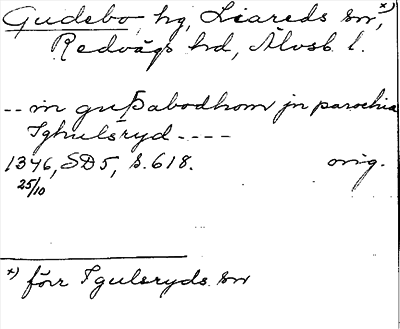 Gudebo hg, Liareds sn, x)
Redvägs hd, Älvsb. l.
-- in guþabodhom jn parochia
Ighulsryd ----
1346, SD 5, s. 618. orig.
25/10
x) förr Igulsryds sn